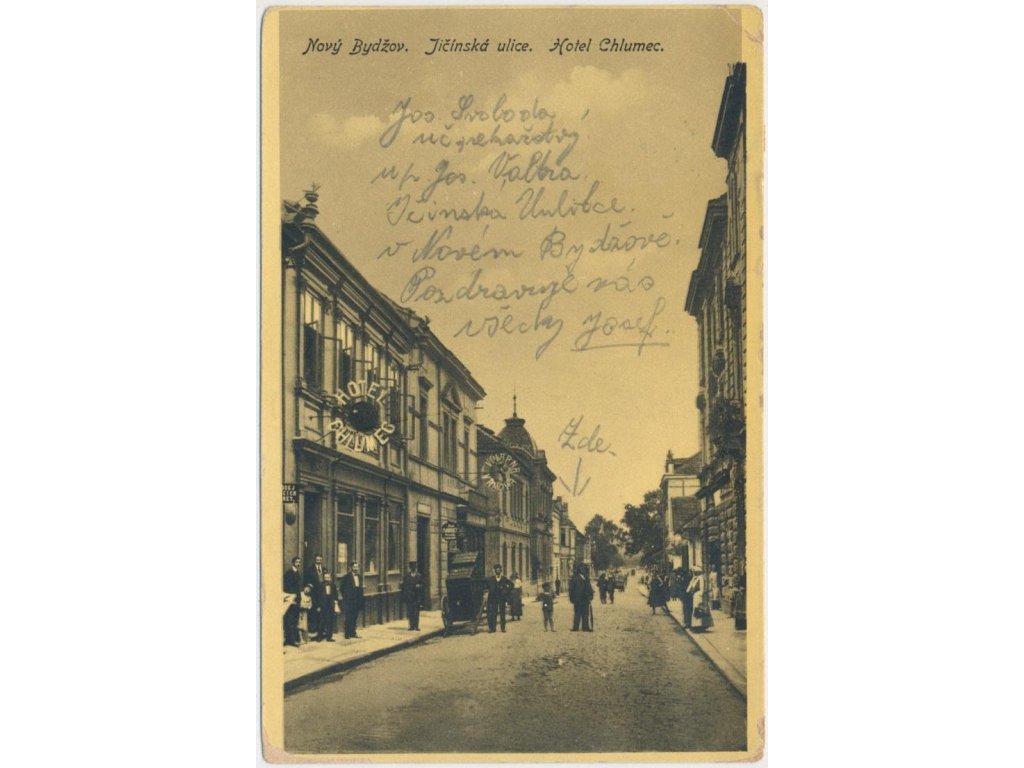 Nový Bydžov. Jičínská ulice. Hotel Chlumec.
Jos Svoboda,
uč. pekařsky
u p Jos. Valtra.
Ičinska Unlibce.
v Novém Bydžově.
Pozdravuje vás
všecky Josef.
HOTEL
CHLUMEC
Zde.